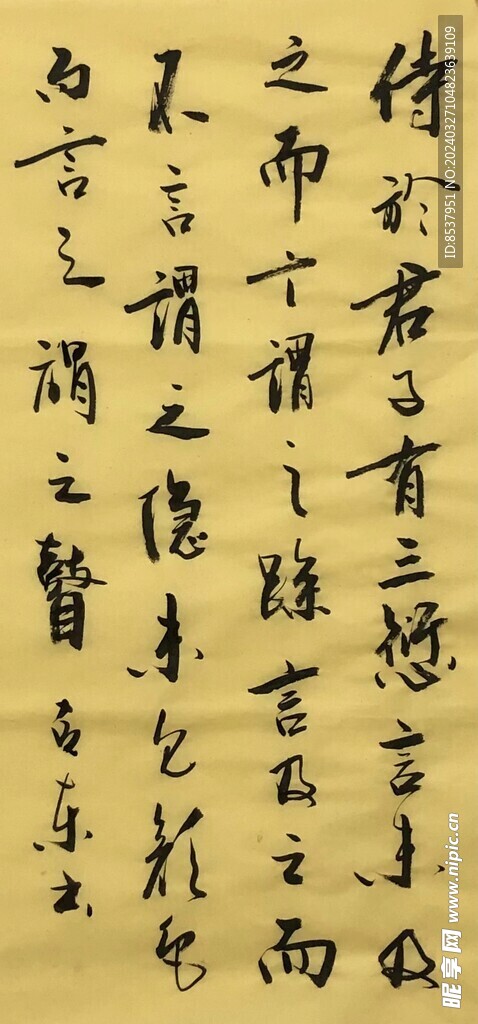 侍於君子有三愆言未及
之而言謂之躁言及之而
不言謂之隐未見顏色
而言之謂之瞽 東书
ID:8537951 NO:20240327104823639109
昵享网 www.nipic.cn